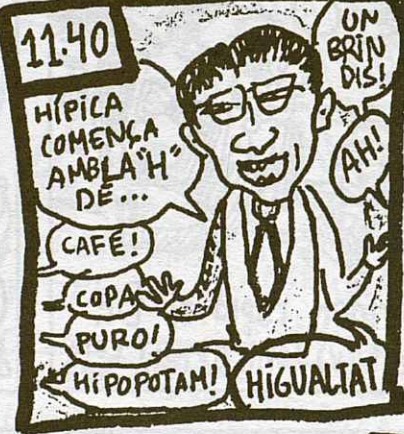 11.40
HÍPICA
COMENÇA
AMB LA "H"
DE...
UN
BRIN
DIS!
AH!
CAFÉ!
COPA
PURO!
HIPOPOTAM!
HIGUALTAT